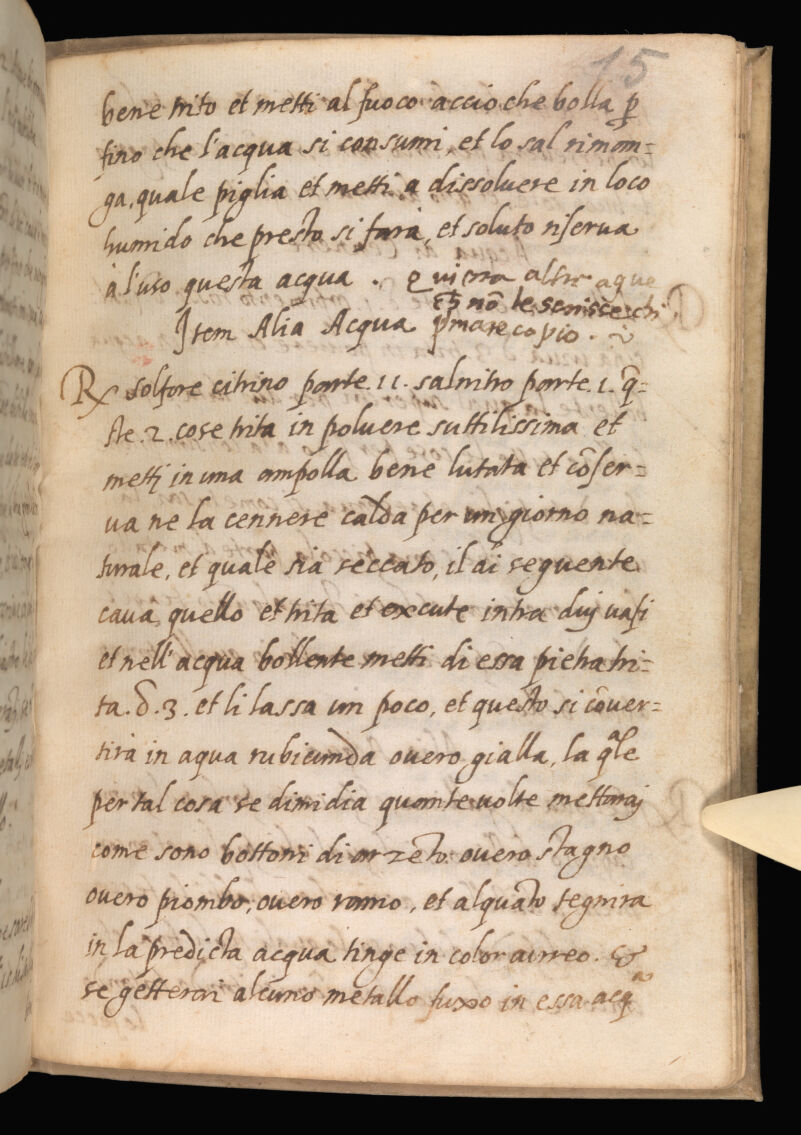 15
bene trito et metti al fuoco accio che bolla p̱
fino che l'acqua si consumi, et lo sal riman=
ga, quale piglia et metti a dissoluere in loco
humido che presto si fara, et soluto riserua
à l'uso questa acqua. qui erra altre aque
nō le scrisse chi
Item Alia Acqua p̄ma re copio.
℞ solfore citrino parte .11. salnitro parte .1. q̄=
ste .2. cose trita in poluere suttilissima et
metti in una ampolla bene lutata et cōser=
ua ne la cennere calda per un giorno na=
turale, et quale sia seccato, il di seguente
caua quello et trita et execute intra duj uasi
et nell'acqua bollente metti di essa pietra tri=
ta .3. et li lassa un poco, et questo si cōuer=
tirà in aqua rubicunda ouero gialla, la q̄le
per tal cosa se dimidia quante uolte metteraj
come sono bottoni di arzeto ouero stagno
ouero piombo, ouero ramo, et alquāto
in la predicta acqua tinge in color aureo. &
se getterai alcuno metallo fuxo in essa acqᵃ